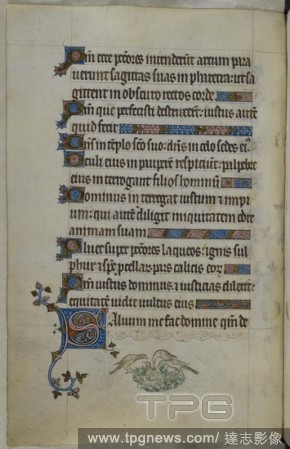 Qm ecce pctores intenderut arcum para
uerunt sagittas suas in pharetra: ut sa
gittent in obscuro rectos corde
Qm que perfecisti destruxerut: iustus aute
quid fecit
Dns in templo sco suo: dns in celo sedes ei
Oculi eius in pauperem respiciunt: palpebre
eius interrogant filios hominu
Dominus interrogat iustum et impi
um: qui autem diligit iniquitatem odit
animam suam
Pluet super pctores laqueos: ignis sul
phur et spc procellar: pars calicis eor
Qm iustus dominus et iusticias dilexit:
equitate uidit uultus eius
Saluum me fac domine qm de
TPG
www.tpgnews.com/ 達志影像